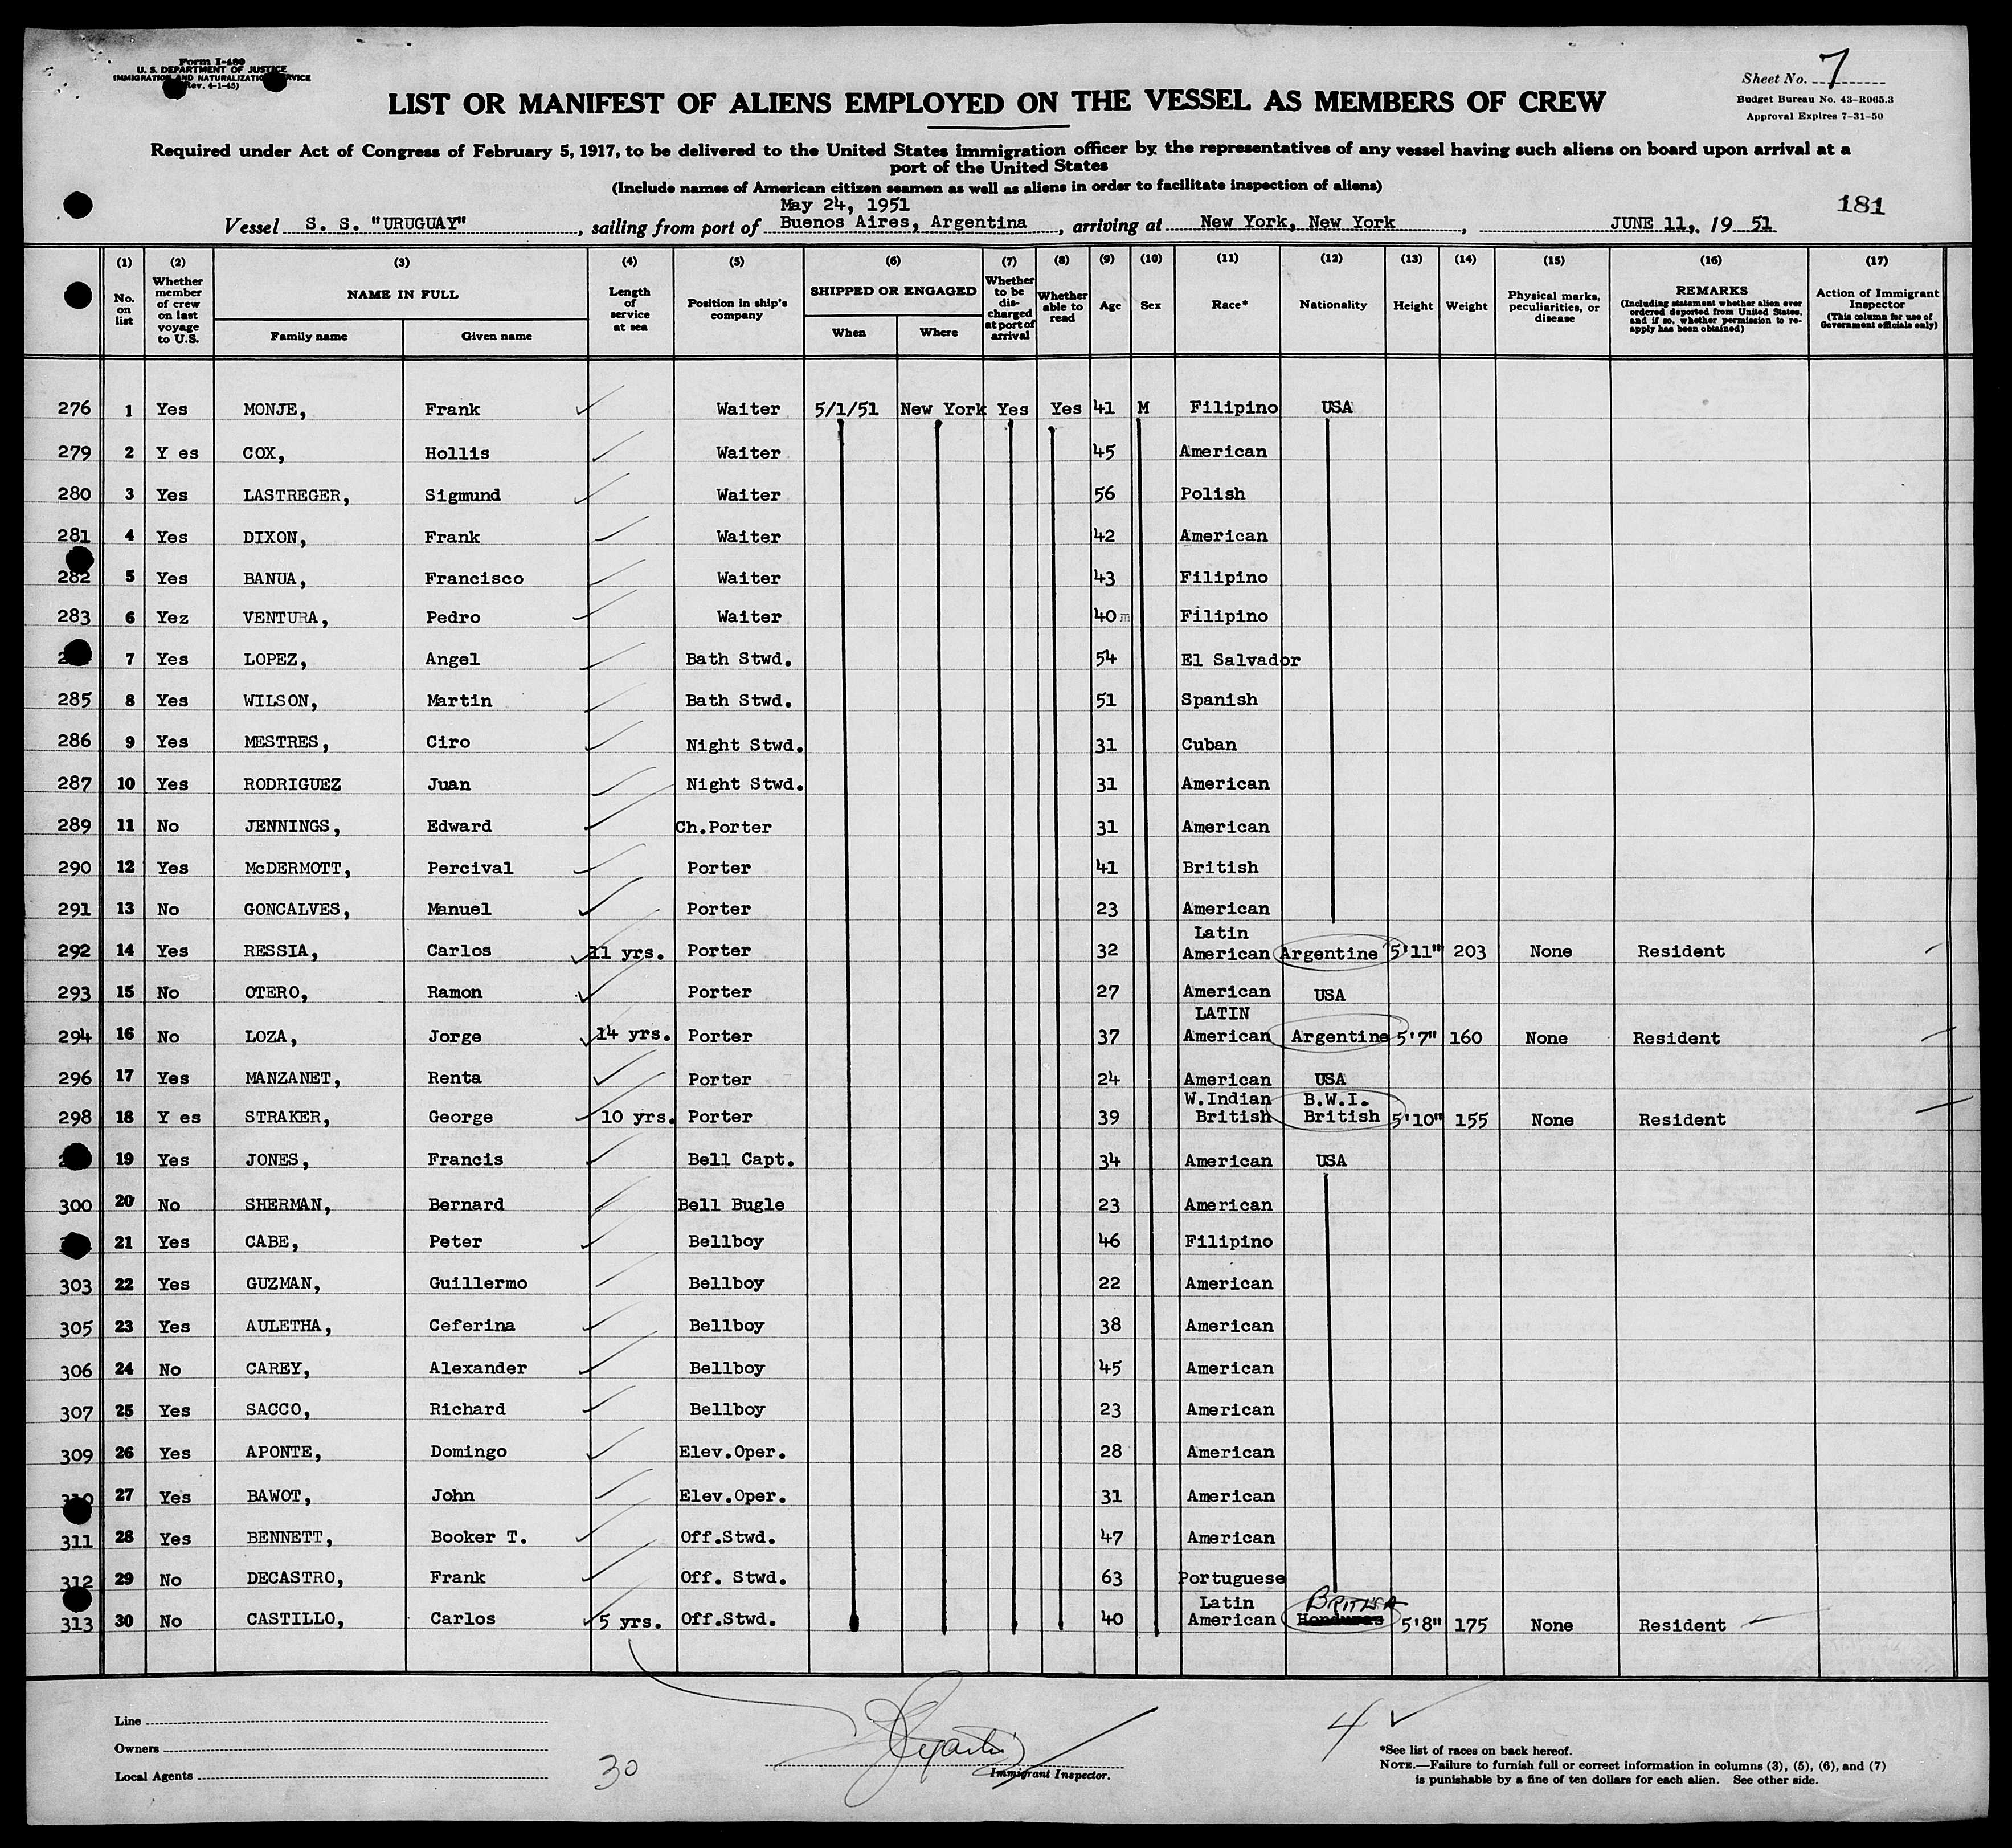 Form I-480
U. S. DEPARTMENT OF JUSTICE
IMMIGRATION AND NATURALIZATION SERVICE
(Rev. 4-1-45)
Sheet No. 7
Budget Bureau No. 43-R065.3
Approval Expires 7-31-50
LIST OR MANIFEST OF ALIENS EMPLOYED ON THE VESSEL AS MEMBERS OF CREW
Required under Act of Congress of February 5, 1917, to be delivered to the United States immigration officer by the representatives of any vessel having such aliens on board upon arrival at a
port of the United States
(Include names of American citizen seamen as well as aliens in order to facilitate inspection of aliens)
181
May 24, 1951
Vessel S. S. "URUGUAY", sailing from port of Buenos Aires, Argentina, arriving at New York, New York, JUNE 11,. 19 51
(1) No. on list (2) Whether member of crew on last voyage to U.S. (3) NAME IN FULL Family name Given name (4) Length of service at sea (5) Position in ship's company (6) SHIPPED OR ENGAGED When Where (7) Whether to be discharged at port of arrival (8) Whether able to read (9) Age (10) Sex (11) Race* (12) Nationality (13) Height (14) Weight (15) Physical marks, peculiarities, or disease (16) REMARKS (Including statement whether alien ever ordered deported from United States, and if so, whether permission to re-apply has been obtained) (17) Action of Immigrant Inspector (This column for use of Government officials only)
276 1 Yes MONJE, Frank Waiter 5/1/51 New York Yes Yes 41 M Filipino USA
279 2 Y es COX, Hollis Waiter 45 American
280 3 Yes LASTREGER, Sigmund Waiter 56 Polish
281 4 Yes DIXON, Frank Waiter 42 American
282 5 Yes BANUA, Francisco Waiter 43 Filipino
283 6 Yez VENTURA, Pedro Waiter 40 m Filipino
7 Yes LOPEZ, Angel Bath Stwd. 54 El Salvador
285 8 Yes WILSON, Martin Bath Stwd. 51 Spanish
286 9 Yes MESTRES, Ciro Night Stwd. 31 Cuban
287 10 Yes RODRIGUEZ Juan Night Stwd. 31 American
289 11 No JENNINGS, Edward Ch.Porter 31 American
290 12 Yes McDERMOTT, Percival Porter 41 British
291 13 No GONCALVES, Manuel Porter 23 American
292 14 Yes RESSIA, Carlos 11 yrs. Porter 32 Latin American Argentine 5'11" 203 None Resident
293 15 No OTERO, Ramon Porter 27 American USA
294 16 No LOZA, Jorge 14 yrs. Porter 37 LATIN American Argentine 5'7" 160 None Resident
296 17 Yes MANZANET, Renta Porter 24 American USA
298 18 Y es STRAKER, George 10 yrs. Porter 39 W.Indian British B.W.I. British 5'10" 155 None Resident
19 Yes JONES, Francis Bell Capt. 34 American USA
300 20 No SHERMAN, Bernard Bell Bugle 23 American
21 Yes CABE, Peter Bellboy 46 Filipino
303 22 Yes GUZMAN, Guillermo Bellboy 22 American
305 23 Yes AULETHA, Ceferina Bellboy 38 American
306 24 No CAREY, Alexander Bellboy 45 American
307 25 Yes SACCO, Richard Bellboy 23 American
309 26 Yes APONTE, Domingo Elev.Oper. 28 American
310 27 Yes BAWOT, John Elev.Oper. 31 American
311 28 Yes BENNETT, Booker T. Off.Stwd. 47 American
312 29 No DECASTRO, Frank Off. Stwd. 63 Portuguese
313 30 No CASTILLO, Carlos 5 yrs. Off.Stwd. 40 Latin American BRITISH Honduras 5'8" 175 None Resident
Line
Owners
Local Agents
30
Immigrant Inspector.
4
*See list of races on back hereof.
NOTE.—Failure to furnish full or correct information in columns (3), (5), (6), and (7)
is punishable by a fine of ten dollars for each alien. See other side.